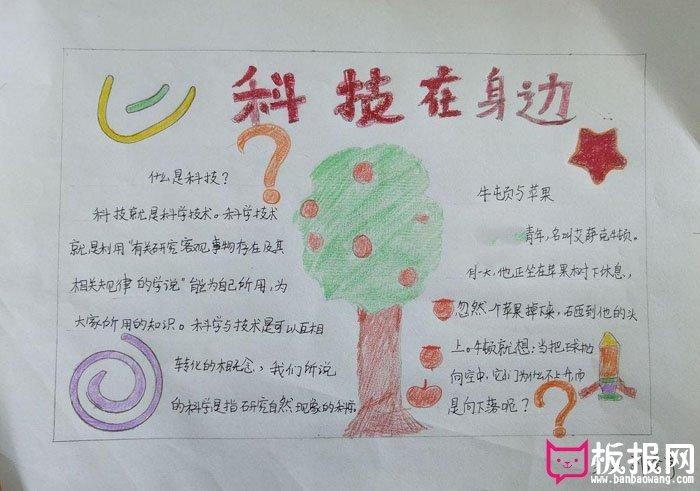 科技在身边
什么是科技？
科技就是科学技术。科学技术
就是利用“有关研究客观事物存在及其
相关规律的学说”能为自己所用，为
大家所用的知识。科学与技术是可以互相
转化的概念，我们所说
的科学是指研究自然现象的
牛顿与苹果
青年，名叫艾萨克牛顿。
有一天，他正坐在苹果树下休息，
忽然一个苹果掉下来，砸到他的头
上。牛顿就想：当把球抛
向空中，它们为什么不上升而
是向下落呢？
板报网
www.banbaowang.com